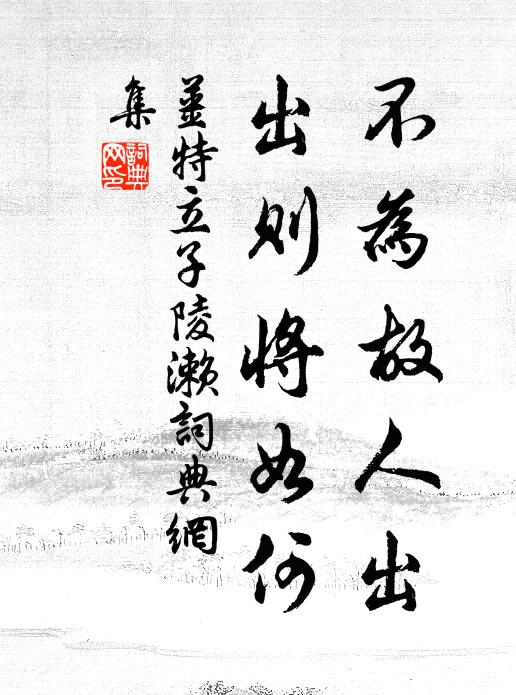 不為故人出
出則將如何
姜特立子陵瀨詞典網
集
詞典
网印